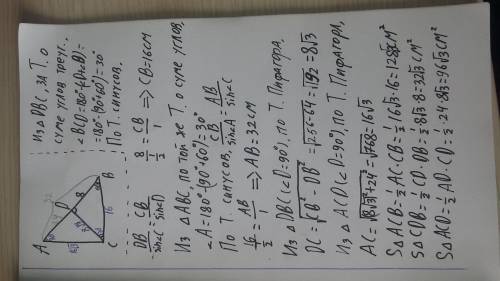 Из △DBC, за Т. о
суме углов треуг.
∠BCD=180°-(∠D+∠B)=
=180°-(90°+60°)=30°
По Т. синусов.
DB/sin∠C = CB/sin∠D
8/(1/2) = CB/1 => CB=16см
Из △ABC, по той же Т. о суме углов.
∠A=180°-(90°+60°)=30°
По Т. синусов, CB/sin∠A = AB/sin∠C
16/(1/2) = AB/1 => AB=32см
Из △DBC(∠D=90°), по Т. Пифагора.
DC=√CB²-DB²=√256-64=√192=8√3
Из △ACD(∠D=90°), по Т. Пифагора,
AC=√8√3²+24²=√768=16√3
S△ACB=1/2AC·CB=1/2 16√3·16=128√3см²
S△CDB=1/2CD·DB=1/2·8√3·8=32√3см²
S△ACD=1/2AD·CD=1/2·24·8√3=96√3см²
A
D
8
B
16
C